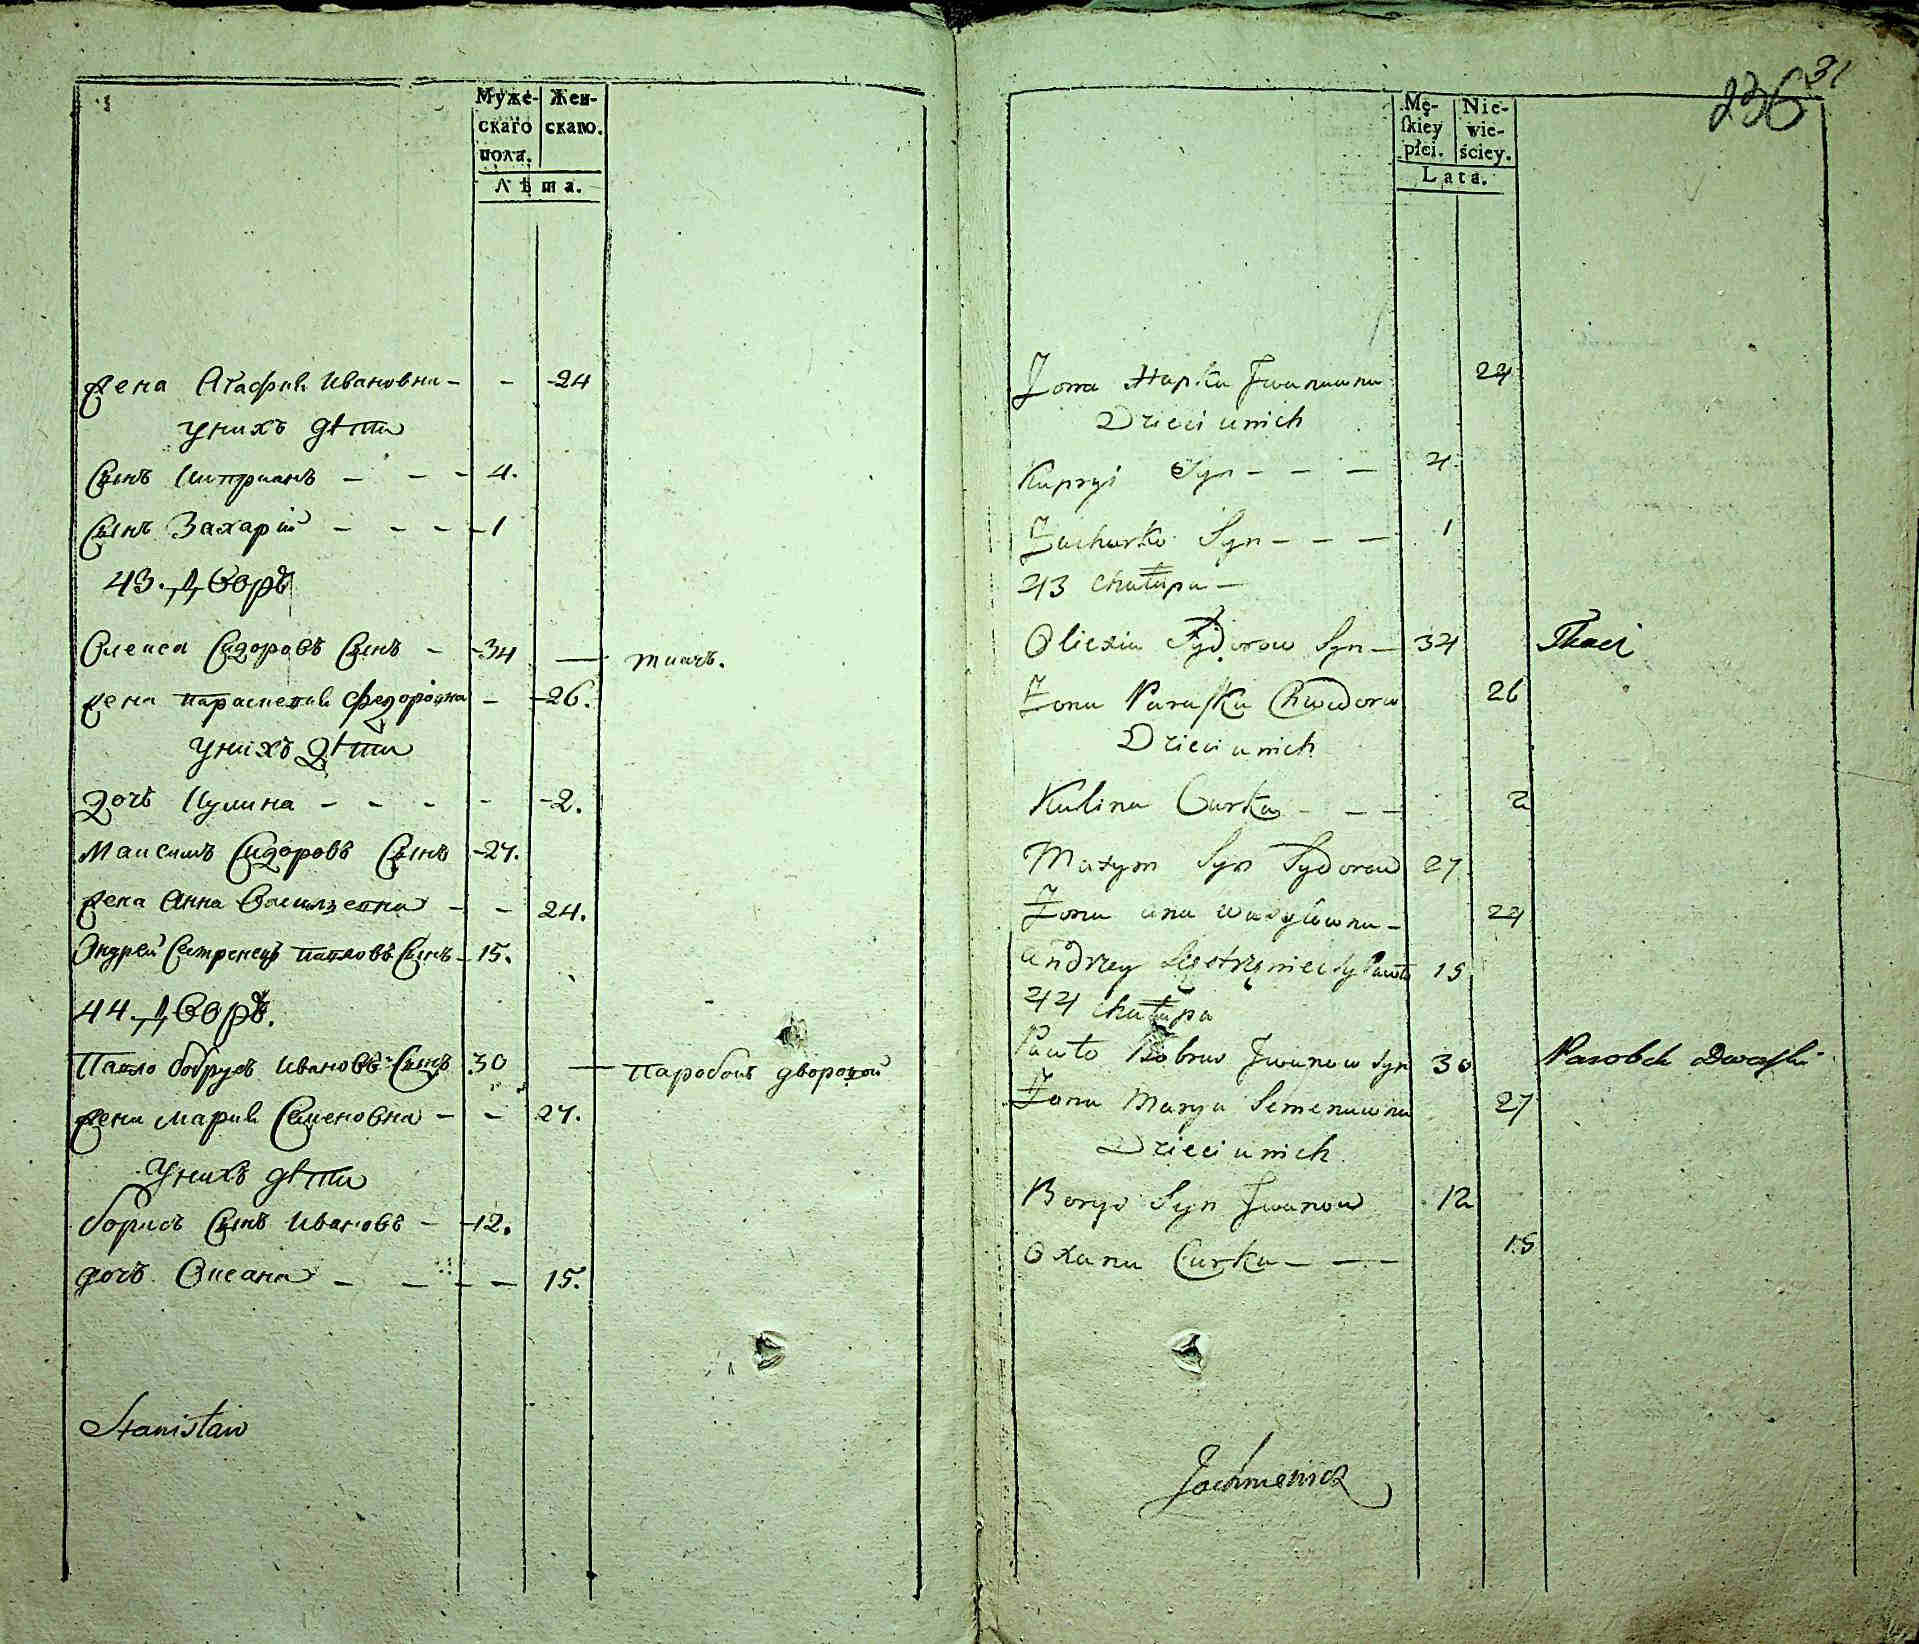 Муже- Жен-
скаго скаго.
пола.
Лѣта.
жена Агафия Ивановна - - -24
у нихъ дѣти
Сынъ Киприанъ - - - 4.
Сынъ Захарій - - - -1
43. Дворъ
Олекса Сидоровъ Сынъ - -34 — ткачъ.
жена Параскевия Федоровна - -26.
у нихъ дѣти
дочь Кулина - - - - -2.
Максимъ Сидоровъ Сынъ -27.
жена Анна Васильевна - - 24.
Андрей Сестренецъ Павловъ Сынъ - 15.
44. Дворъ.
Павло бобрусь Ивановъ Сынъ 30 — Паробокъ дворовой
жена Мария Семеновна - - 27.
у нихъ дѣти
борисъ Сынъ Ивановъ - -12.
дочь Оксана - - - - 15.
Stanisław
236 31
Mę- Nie-
ſkiey wie-
płci. ściey.
Lata.
Żona Hapka Jwanowna 24
Dzieci u nich
Kupryi Syn - - - 4
Zacharko Syn - - - 1
43 Chałupa -
Olexia Sydorow Syn - 34 Tkacz
Żona Paraſka Chwedorow 26
Dzieci u nich
Kulina Curka - - - 2
Maxym Syn Sydorow 27
Żona Ana Wasylowna - 24
Andrzey Sestrzeniec Sy Pawło 15
44 Chałupa
Pawło Bobrus Jwanow Syn 30 Parobek Dworſki
Żona Marya Semenowna 27
Dzieci u nich
Borys Syn Jwanow 12
Oxana Curka - - - 15
Jachimowicz